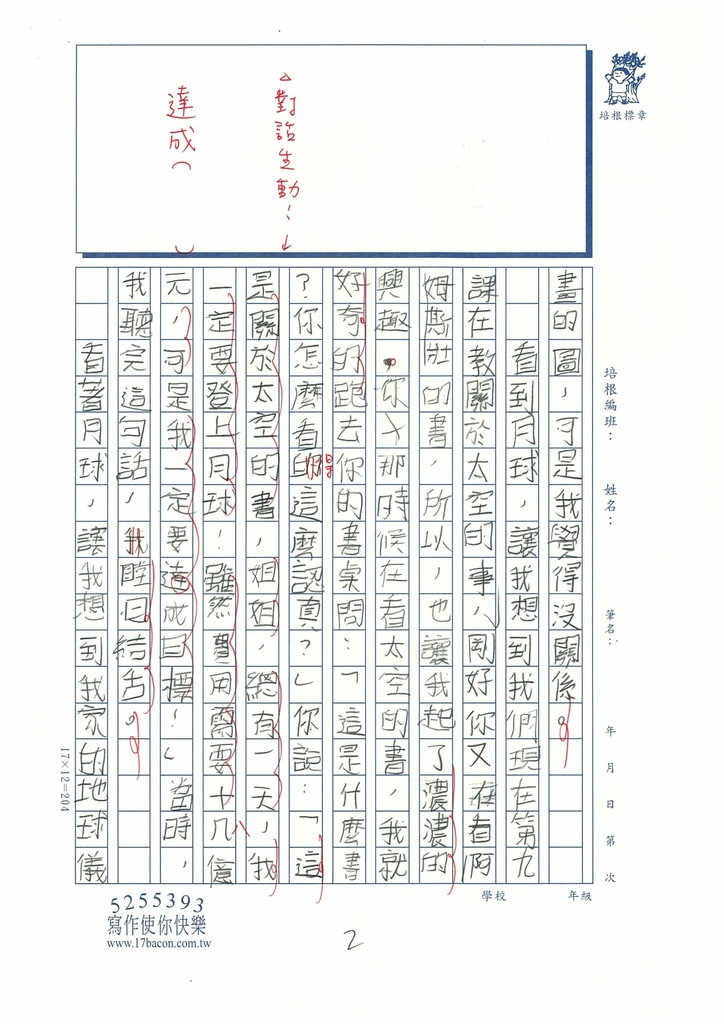 培根標章
△對話生動：↓
達成（　）
培根編班：　姓名：　筆名：　年　月　日　第　次
學校　年級
畫的圖，可是我覺得沒關係。
看到月球，讓我想到我們現在第九
課在教關於太空的事，剛好你又在看阿
姆斯壯的書，所以，也讓我起了濃濃的
興趣，你那時候在看太空的書，我就
好奇的跑去你的書桌問：「這是什麼書
？你怎麼看得這麼認真？」你說：「這
是關於太空的書，姐姐，總有一天，我
一定要登上月球！雖然費用需要十幾億
元，可是我一定要達成目標！」當時，
我聽完這句話，我瞠目結舌。
看著月球，讓我想到我家的地球儀
17×12=204
5255393
寫作使你快樂
www.17bacon.com.tw
2